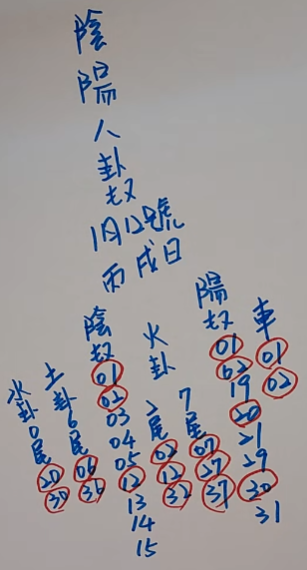 陰陽人卦奴
1月12號
丙戌日
車
01
02
陽奴
01
02
19
20
21
29
30
31
火卦
7尾
07
27
37
2尾
02
12
32
陰奴
01
02
03
04
05
12
13
14
15
土卦6尾
06
36
水卦0尾
20
30